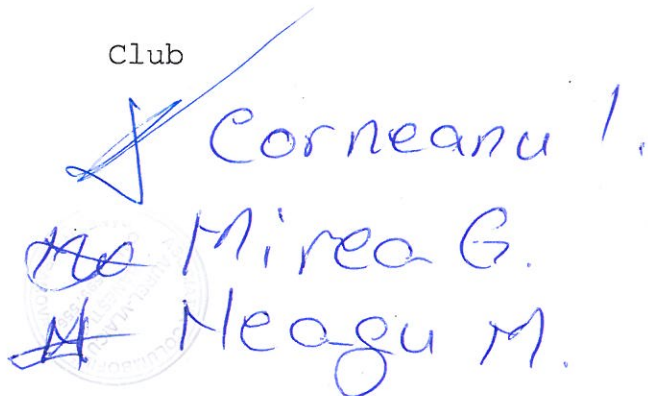 Club
Corneanu I.
Mirea G.
Neagu M.